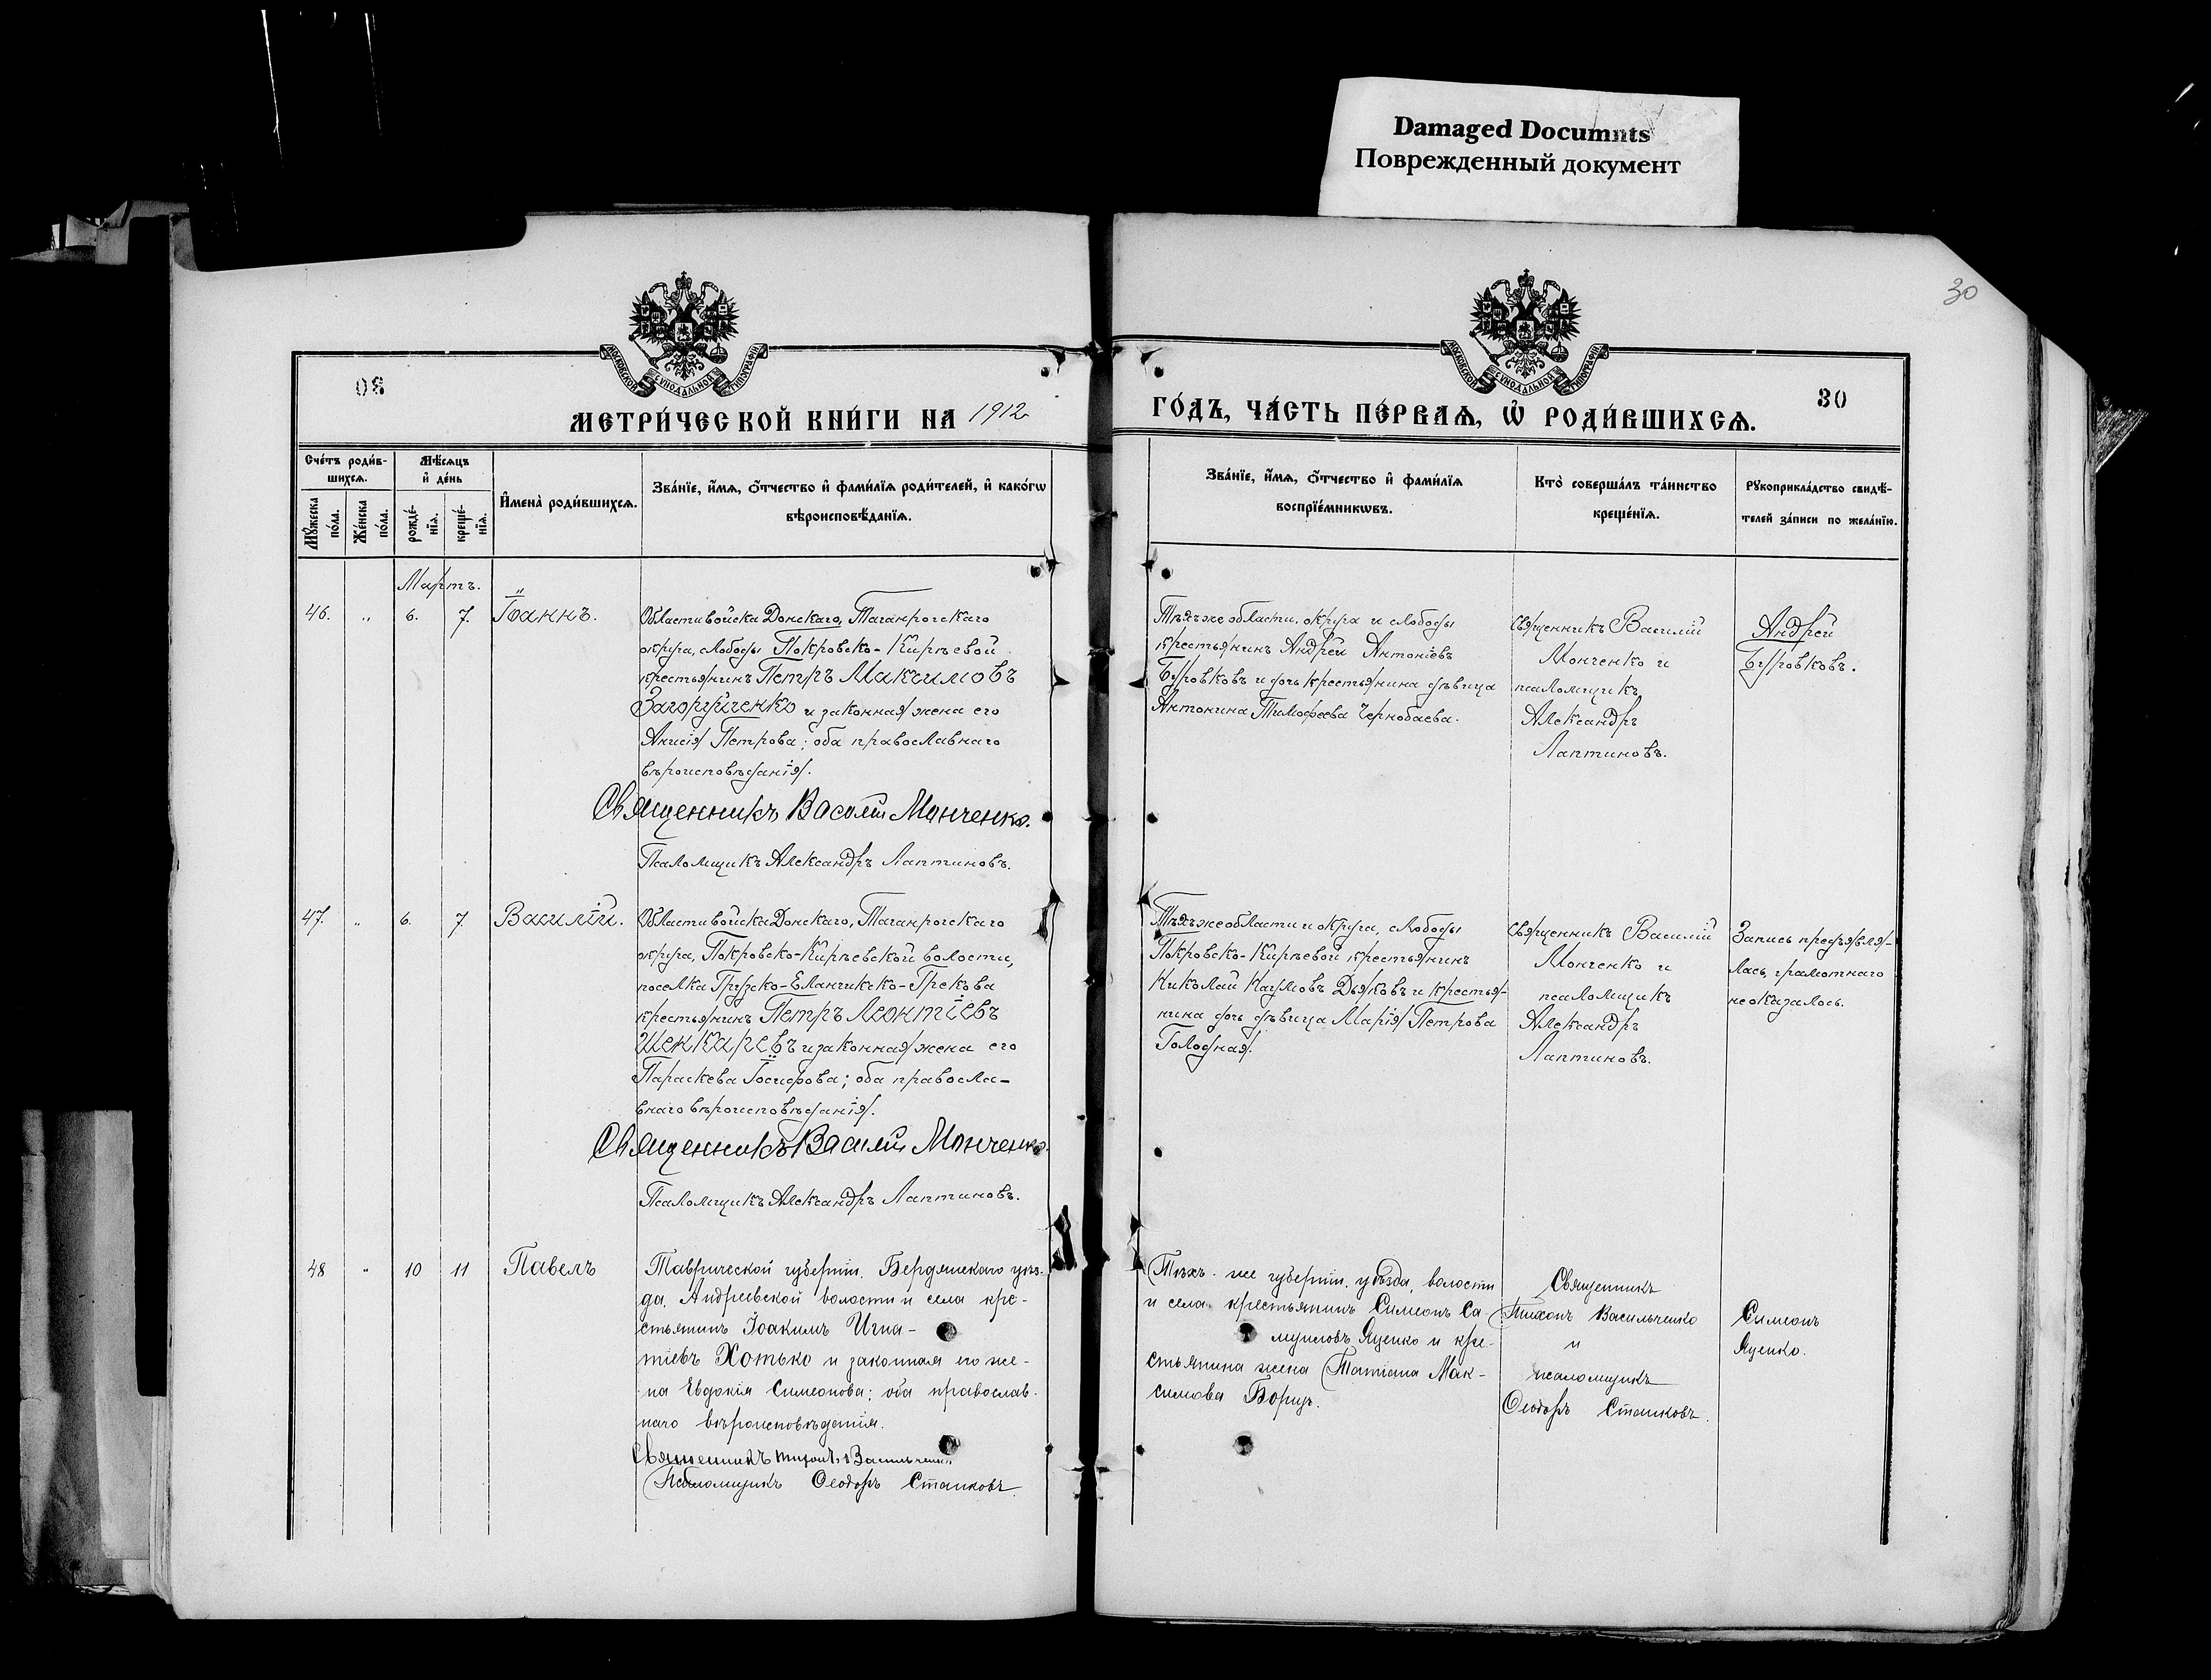 Damaged Documnts
Поврежденный документ
30
МОСКОВСКОЙ СѴНОДАЛЬНОЙ ТИПОГРАФІИ
МОСКОВСКОЙ СѴНОДАЛЬНОЙ ТИПОГРАФІИ
30
МЕТРИ́ЧЕСКОЙ КНИ́ГИ НА 1912
ГО́ДЪ, ЧА́СТЬ ПЕ́РВАѦ, Ѡ҆ РОДИ́ВШИХСѦ.
30
Сче́тъ роди́в-
шихсѧ.
Мꙋ́жеска
по́ла.
Же́нска
по́ла.
Мѣ́сѧцъ
и҆ де́нь
рожде́-
нїѧ.
креще́-
нїѧ.
И҆мена̀ роди́вшихсѧ.
Зва́нїе, и҆́мѧ, ѻ҆́тчество и҆ фами́лїѧ роди́телей, и҆ како́гѡ
вѣроисповѣ́данїѧ.
Зва́нїе, и҆́мѧ, ѻ҆́тчество и҆ фами́лїѧ
воспрїе́мникѡвъ.
Кто̀ соверша́лъ та́инство
креще́нїѧ.
Рꙋкоприкла́дство свидѣ́-
телей за́писи по жела́нїю.
Мартъ.
46. " 6. 7. Іоаннъ.
Области войска Донскаго, Таганрогскаго
округа, слободы Покровско-Кирѣевой
крестьянинъ Петръ Максимовъ
Загоруйченко и законная жена его
Анисія Петрова; оба православнаго
вѣроисповѣданія.
Священникъ Василій Монченко.
Псаломщикъ Александръ Лаптиновъ.
Тѣхъ же области, округа и слободы
крестьянинъ Андрей Антоніевъ
Буровковъ и дочь крестьянина дѣвица
Антонина Тимофеева Чернобаева.
Священникъ Василій
Монченко и
псаломщикъ
Александръ
Лаптиновъ.
Андрей
Буровковъ.
47. " 6. 7 Василій.
Области войска Донскаго, Таганрогскаго
округа, Покровско-Кирѣевской волости,
поселка Грузско-Еланчикско-Грекова
крестьянинъ Петръ Леонтіевъ
Шенкаревъ и законная жена его
Параскева Іосифова; оба правосла-
внаго вѣроисповѣданія.
Священникъ Василій Монченко.
Псаломщикъ Александръ Лаптиновъ.
Тѣхъ же области и округа, слободы
Покровско-Кирѣевой крестьянинъ
Николай Наумовъ Дьяковъ и крестья-
нина дочь дѣвица Марія Петрова
Голодная.
Священникъ Василій
Монченко и
псаломщикъ
Александръ
Лаптиновъ.
Запись предъявля-
лась, грамотнаго
не оказалось.
48 " 10 11 Павелъ
Таврической губерніи, Бердянскаго уѣз-
да, Андреевской волости и села кре-
стьянинъ Іоакимъ Игна-
тіевъ Хотько и законная его же-
на Евдокія Симеонова; оба православ-
наго вѣроисповѣданія.
Священникъ Тихонъ Васильченко
Псаломщикъ Ѳеодоръ Станковъ.
Тѣхъ-же губерніи, уѣзда, волости
и села крестьянинъ Симеонъ Са-
муиловъ Яценко и кре-
стьянина жена Татіана Мак-
симова Борщъ.
Священникъ
Тихонъ Васильченко
и
псаломщикъ
Ѳеодоръ Станковъ.
Симеонъ
Яценко.